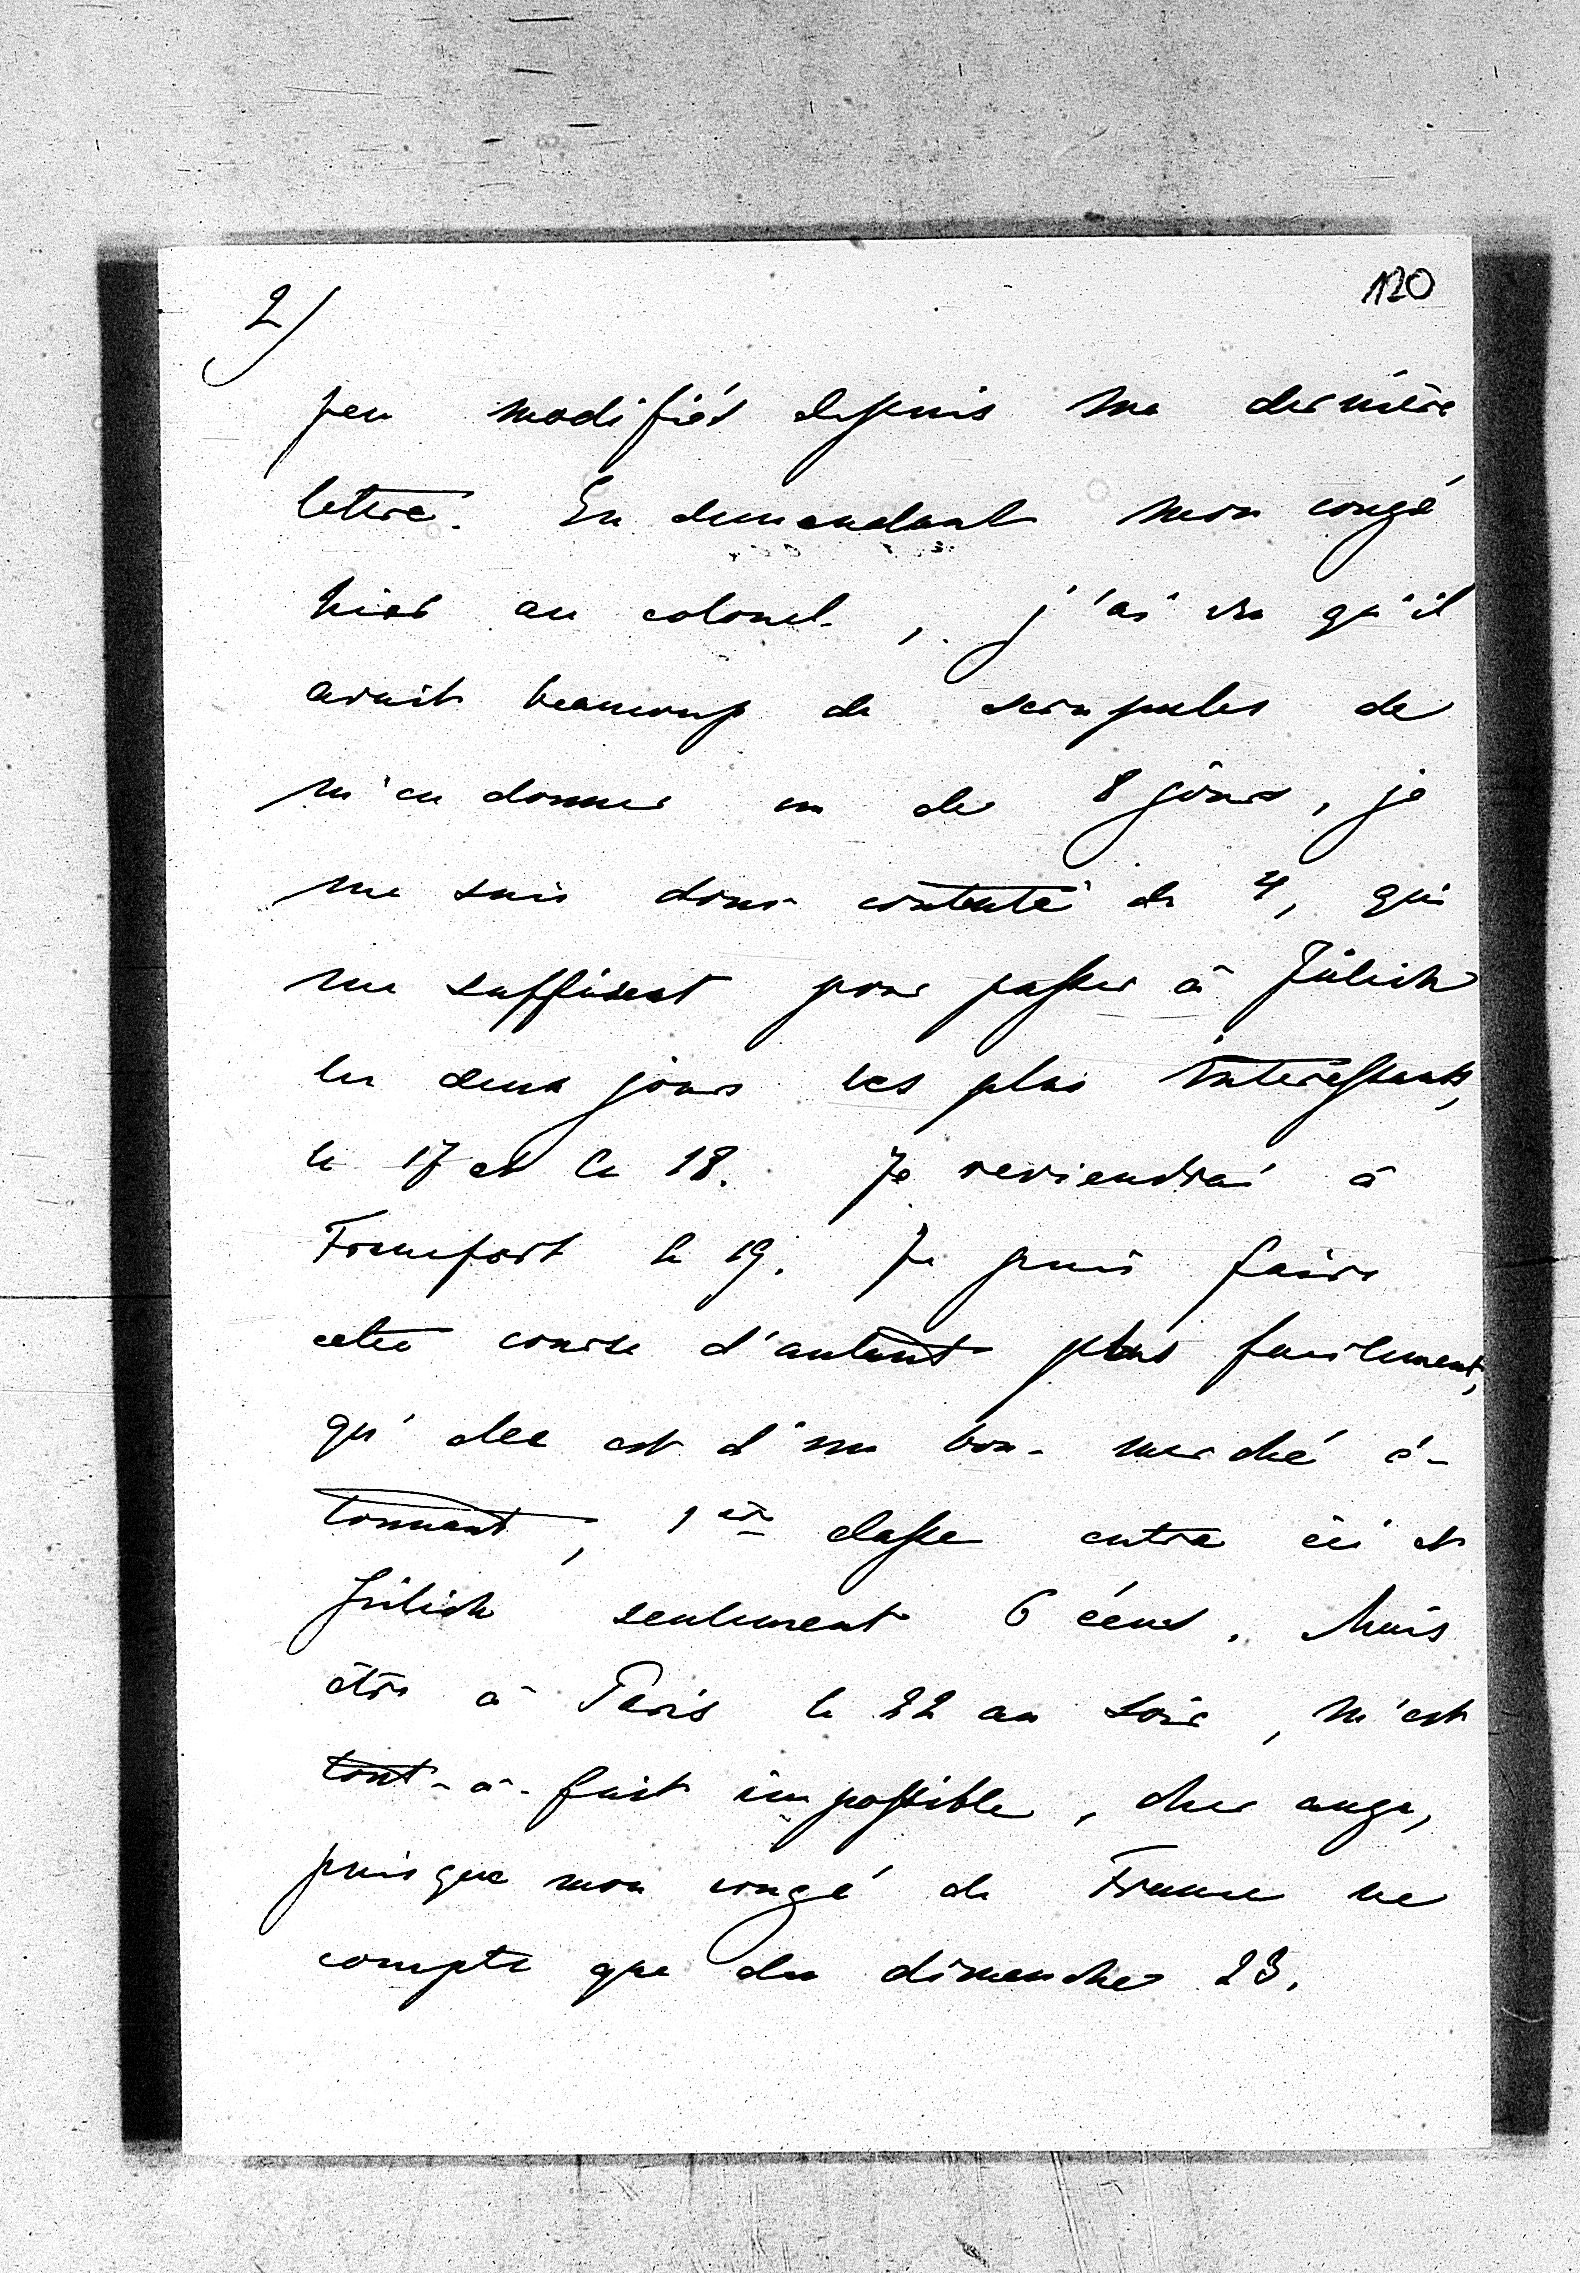 2)
120
peu modifiés depuis ma dernière
lettre. En demandant mon congé
hier au colonel, j'ai vu qu'il
avait beaucoup de scrupules de
m'en donner un de 8 jours, je
me suis donc contenté de 4, qui
me suffisent pour passer à Jülich
les deux jours les plus intéressants,
le 17 et le 18. Je reviendrai à
Francfort le 19. Je puis faire
cette course d'autant plus facilement,
qu'elle est d'un bon-marché é-
tonnant, 1ère classe entre ici et
Jülich seulement 6 écus. Mais
être à Paris le 22 au soir, m'est
tout-à-fait impossible, cher ange,
puisque mon congé de France ne
compte que du dimanche 23.